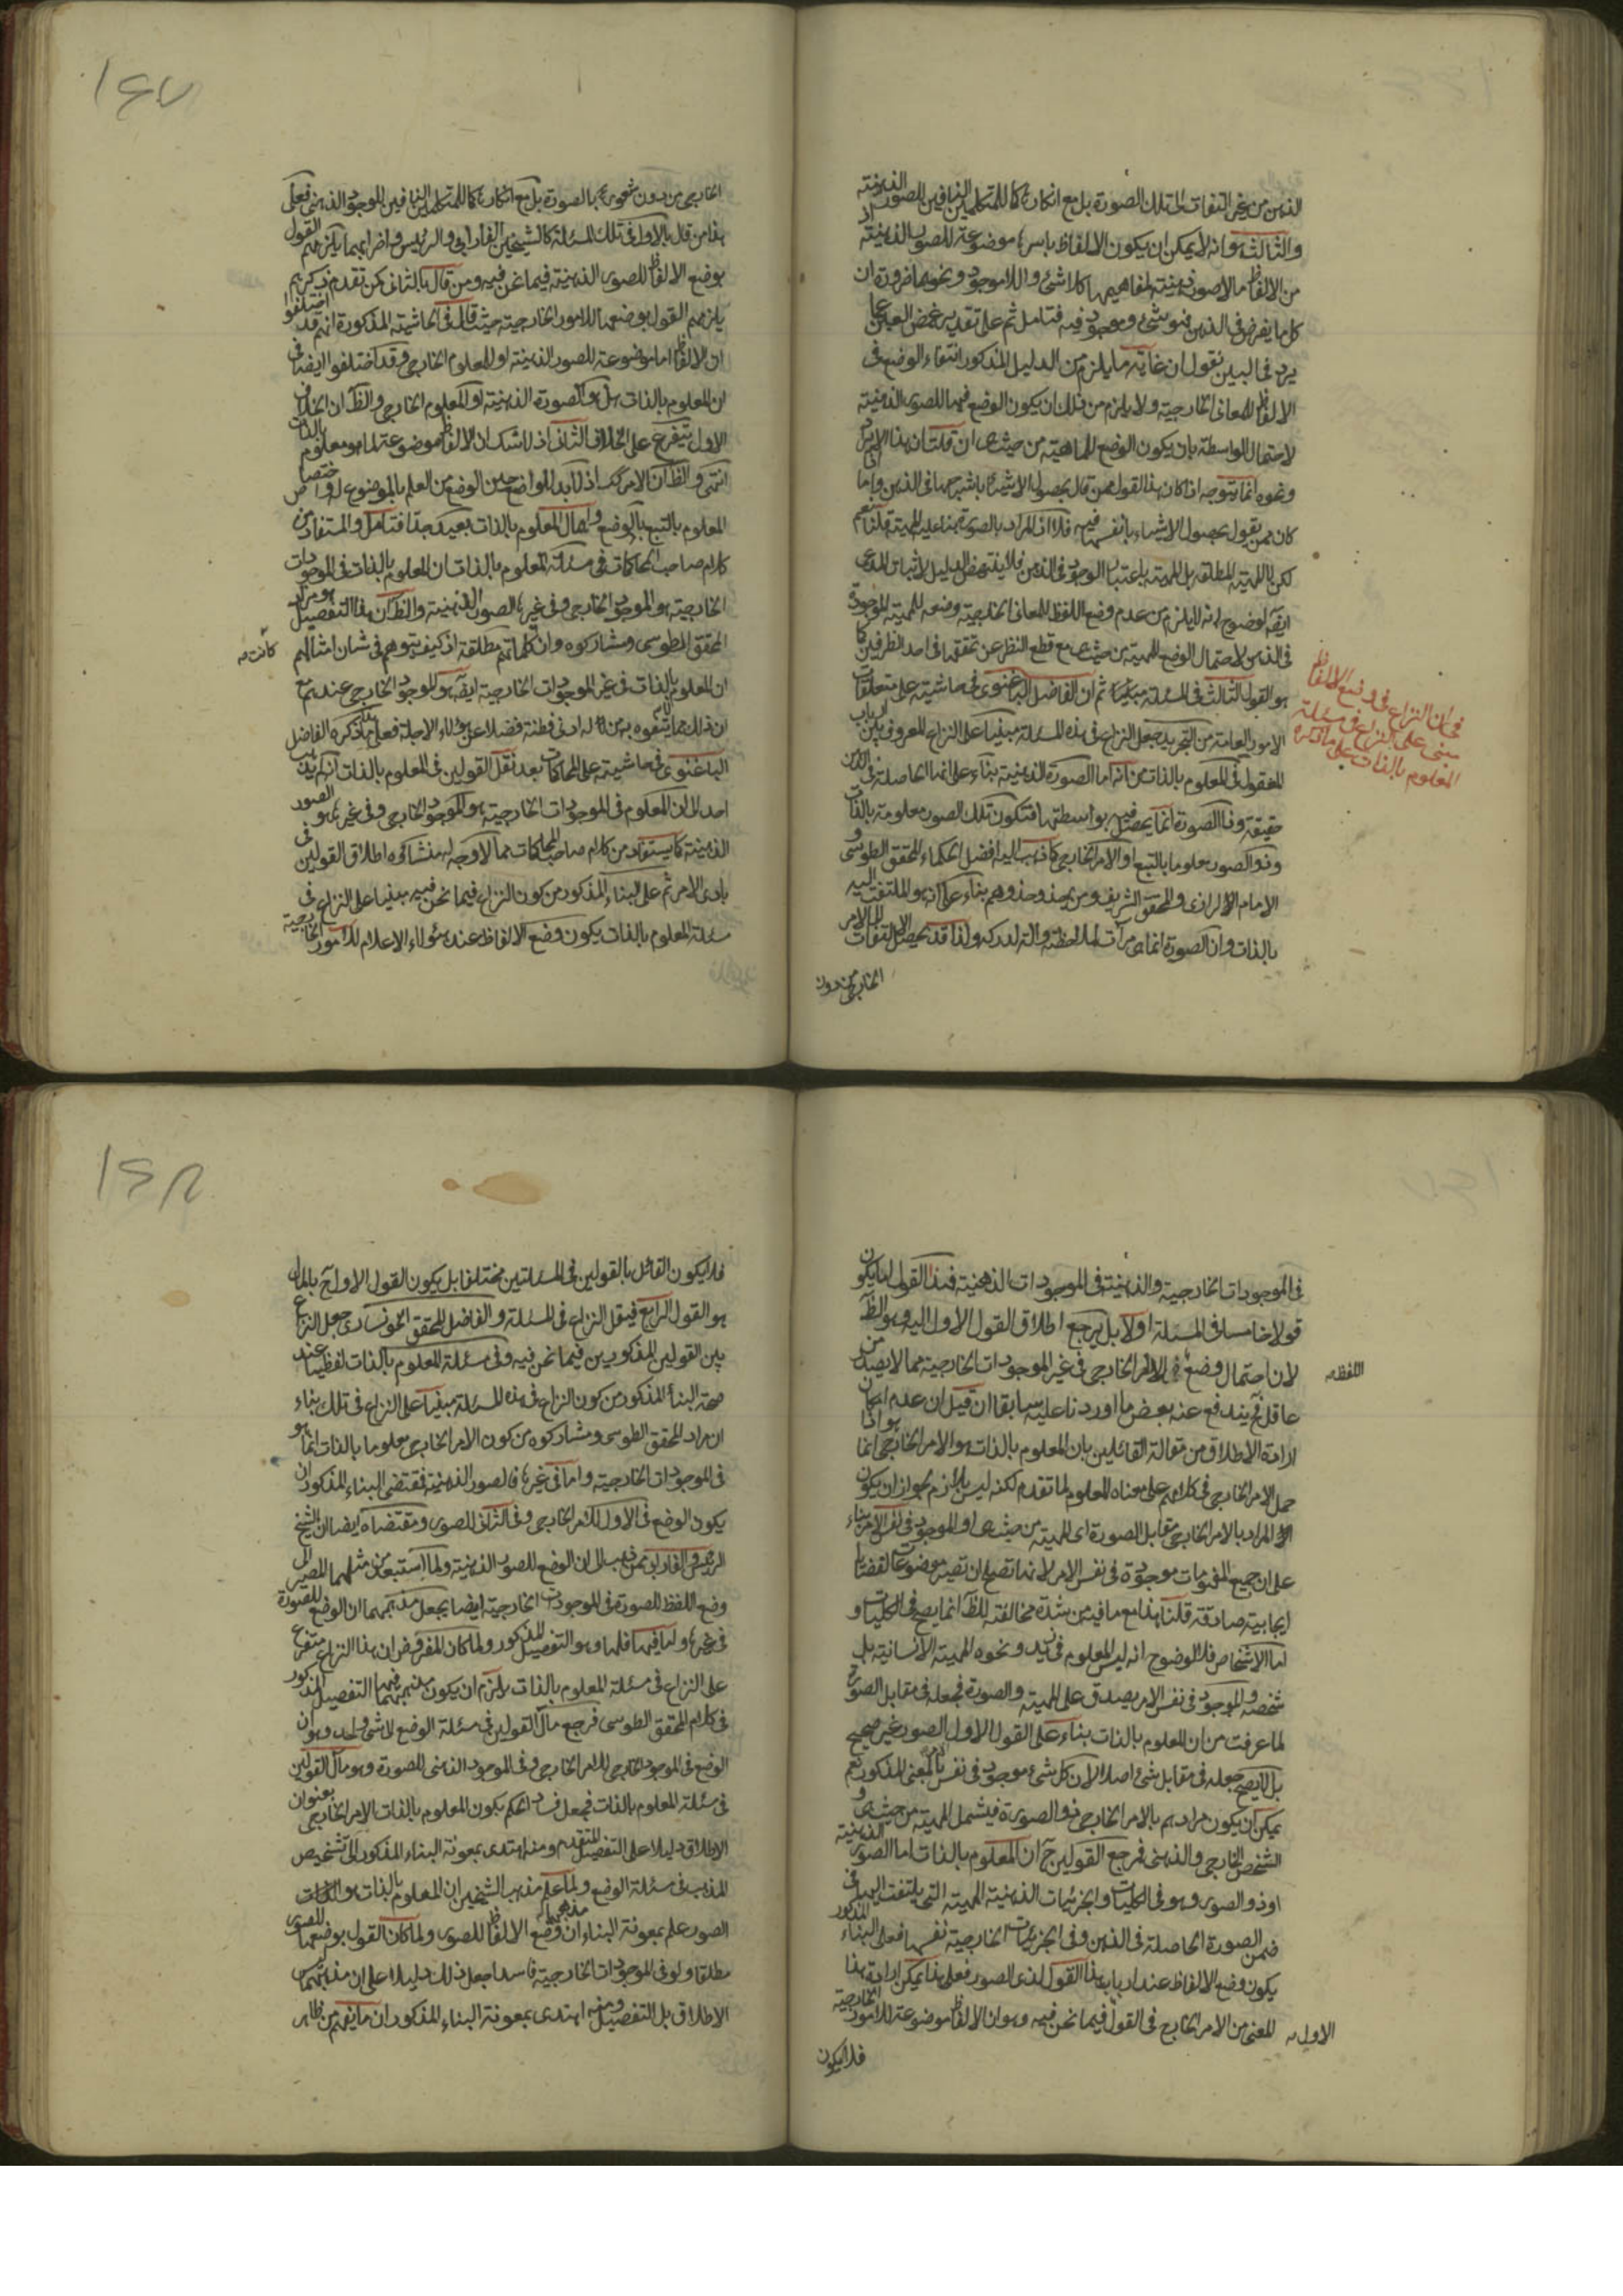 الذهن من غير التفات الى تلك الصورة بل مع انكارها كالمتكلمين النافين للصور الذهنية
والثالث هو انه لا يمكن ان يكون الالفاظ باسرها موضوعة للصور الذهنية اذ
من الالفاظ ما لا صورة ذهنية لمفاهيمها كاللاشئ واللاموجود ونحوهما ضرورة ان
كل ما يفرض في الذهن فهو شئ وموجود فيه فتامل ثم على تقدير غمض العين عما
يرد في البين نقول ان غاية ما يلزم من الدليل المذكور انتفاء الوضع في
الالفاظ للمعانى الخارجية ولا يلزم من ذلك ان يكون الوضع فيها للصور الذهنية
لاحتمال الواسطة بان يكون الوضع للماهية من حيث هى ان قلت ان هذا الايراد
ونحوه انما يتوجه اذا كان هذا القول ممن قال بحصول الاشياء باشباحها في الذهن واما اذا
كان ممن يقول بحصول الاشياء بانفسها فيه فلا اذ المراد بالصورة بناء عليه المهية قلنا نعم
لكن لا المهية المطلقة بل المهية باعتبار الوجود في الذهن فلا ينتهض الدليل لاثبات المدعى
ايضا لوضوح انه لا يلزم من عدم وضع اللفظ للمعانى الخارجية وضعه للمهية الموجودة
في الذهن لاحتمال الوضع للمهية من حيث هى مع قطع النظر عن تحققها في احد الظرفين كما
هو القول الثالث في المسئلة ثم ان الفاضل الباغنوى في حاشيته على متعلقات
الامور العامة من التجريد جعل النزاع في هذه المسئلة مبنيا على النزاع المعروف بين ارباب
المعقول في المعلوم بالذات من انه اما الصورة الذهنية بناء على انها الحاصلة في الذهن
حقيقة وذا الصورة انما يحصل فيه بواسطتها فتكون تلك الصور معلومة بالذات
وذو الصور معلوما بالتبع او الامر الخارجى كما ذهب اليه افضل الحكماء المحقق الطوسى و
الامام الرازى والمحقق الشريف ومن يحذو حذوهم بناء على انه هو الملتفت اليه
بالذات وان الصورة انما هى مرآت لملاحظته وآلة لدركه ولذا قد يحصل الالتفات الى الامر
الخارجى من دون
في ان النزاع في وضع الالفاظ
مبنى على النزاع في مسئلة
المعلوم بالذات على ما ذكره
١٤٧
الخارجى من دون شعور بالصورة بل مع انكارها كالمتكلمين النافين للوجود الذهنى فعلى
هذا من قال بالاول في تلك المسئلة كالشيخين الفارابى والرئيس واضرابهما يلزمهم القول
بوضع الالفاظ للصور الذهنية فيما نحن فيه ومن قال بالثانى كمن تقدم ذكرهم
يلزمهم القول بوضعها للامور الخارجية حيث قال في الحاشية المذكورة انهم قد اختلفوا
ان الالفاظ اما موضوعة للصور الذهنية او للمعلوم الخارجى وقد اختلفوا ايضا في
ان المعلوم بالذات هل هو الصورة الذهنية او المعلوم الخارجى والظ ان الخلاف
الاول يتفرع على الخلاف الثانى اذ لا شك ان الالفاظ موضوعة لما هو معلوم بالذات
انتهى والظ ان الامر كك اذ لا بد للواضع حين الوضع من العلم بالموضوع له واختصاص
المعلوم بالتبع بالوضع واهمال المعلوم بالذات بعيد جدا فتامل والمستفاد من
كلام صاحب المحاكمات في مسئلة المعلوم بالذات ان المعلوم بالذات في الموجودات
الخارجية هو الموجود الخارجى وفى غيرها الصور الذهنية والظ ان هذا التفصيل هو مراد
المحقق الطوسى ومشاركوه وان كلماتهم مطلقة اذ كيف يتوهم في شان امثالهم
كانت صه
ان المعلوم بالذات في غير الموجودات الخارجية ايضا هو الموجود الخارجى عندهم مع
ان ذلك مما لا يتفوه به من له ادنى فطنة فضلا عن هؤلاء الاجلة فعلى هذا ما ذكره الفاضل
الباغنوى في حاشيته على المحاكمات بعد نقل القولين في المعلوم بالذات انه لم يذهب
احد الى ان المعلوم في الموجودات الخارجية هو الموجود الخارجى وفى غيرها هو الصور
الذهنية كما يستفاد من كلام صاحب المحاكمات مما لا وجه له منشاؤه اطلاق القولين في
بادى الامر ثم على البناء المذكور من كون النزاع فيما نحن فيه مبنيا على النزاع في
مسئلة المعلوم بالذات يكون وضع الالفاظ عند هؤلاء الاعلام للامور الخارجية
في الموجودات الخارجية والذهنية في الموجودات الذهنية فهذا القول اما يكون
قولا خامسا في المسئلة اولا بل يرجع اطلاق القول الاول اليه وهو الظ
لان احتمال وضع للامر الخارجى في غير الموجودات الخارجية مما لا يصدر من
اللفظ صه
عاقل فح يندفع عنه بعض ما اوردنا عليه سابقا ان قيل ان عدم امكان
ارادة الاطلاق من مقالة القائلين بان المعلوم بالذات هو الامر الخارجى انما هو اذا
حمل الامر الخارجى في كلامهم على معناه المعلوم لما تقدم لكنه ليس بلازم لجواز ان يكون
المراد بالامر الخارجى مقابل الصورة اى المهية من حيث هى او الموجود في نفس الامر بناء
على ان جميع المفهومات موجودة في نفس الامر لانها تصلح ان تصير موضوعات لقضايا
ايجابية صادقة قلنا هذا مع ما فيه من شدة مخالفته للظ انما يصح في الكليات و
اما الاشخاص فلا لوضوح انه ليس المعلوم في زيد ونحوه المهية الانسانية بل
شخصه والموجود في نفس الامر يصدق على المهية والصورة فجعله في مقابل الصورة
لما عرفت من ان المعلوم بالذات بناء على القول الاول الصور غير صحيح
بل لا يصح جعله في مقابل شئ اصلا لان كل شئ موجود في نفس الامر بالمعنى المذكور نعم
يمكن ان يكون مرادهم بالامر الخارجى ذو الصورة فيشمل المهية من حيث هى و
الشخص الخارجى والذهنى فمرجع القولين ح ان المعلوم بالذات اما الصور الذهنية
او ذو الصور وهو في الكليات والجزئيات الذهنية المهية التى يلتفت اليها في
ضمن الصورة الحاصلة في الذهن وفى الجزئيات الخارجية نفسها فعلى البناء المذكور
يكون وضع الالفاظ عند ارباب هذا القول لذى الصور فعلى هذا يمكن ارادة هذا
المعنى من الامر الخارج في القول فيما نحن فيه وهو ان الالفاظ موضوعة للامور الخارجية
الاول صه
فلا يكون
١٤٨
فلا يكون القائل بالقولين في المسئلتين مختلفا بل يكون القول الاول ح بالمال
هو القول الرابع فيقل النزاع في المسئلة والفاضل المحقق الخونسارى جعل النزاع
بين القولين المذكورين فيما نحن فيه وفى مسئلة المعلوم بالذات لفظيا عند
صحة البناء المذكور من كون النزاع في هذه المسئلة مبنيا على النزاع في تلك بناء
ان مراد المحقق الطوسى ومشاركوه من كون الامر الخارجى معلوما بالذات انما هو
في الموجودات الخارجية واما في غيرها فالصور الذهنية فمقتضى البناء المذكور ان
يكون الوضع في الاول للامر الخارجى وفى الثانى للصور ومقتضاه ايضا ان الشيخ
الرئيس والفارابى ممن ذهب الى ان الوضع للصور الذهنية ولما استبعد من مثلهما المصير الى
وضع اللفظ للصورة في الموجودات الخارجية ايضا يجعل مذهبهما ان الوضع للصورة
في غيرها واما فيها فلها وهو التفصيل المذكور ولما كان المفروض ان هذا النزاع متفرع
على النزاع في مسئلة المعلوم بالذات يلزم ان يكون مذهبهما فيها التفصيل المذكور
في كلام المحقق الطوسى فرجع مآل القولين في مسئلة الوضع لشئ واحد وهو ان
الوضع في الموجود الخارجى للامر الخارجى وفى الموجود الذهنى للصورة وهو مآل القولين
في مسئلة المعلوم بالذات فجعل فساد الحكم بكون المعلوم بالذات الامر الخارجى بعنوان
الاطلاق دليلا على التفصيل المتقدم ومنه اهتدى بمعونة البناء المذكور الى تشخيص
المذهب في مسئلة الوضع ولما علم مذهب الشيخين ان المعلوم بالذات هو
الصور علم بمعونة البناء ان مذهبهما وضع الالفاظ للصور ولما كان القول بوضعها للصور
مطلقا ولو في الموجودات الخارجية فاسدا جعل ذلك دليلا على ان مذهبهما ليس
الاطلاق بل التفصيل ومنه اهتدى بمعونة البناء المذكور ان ما يفهم من ظاهر